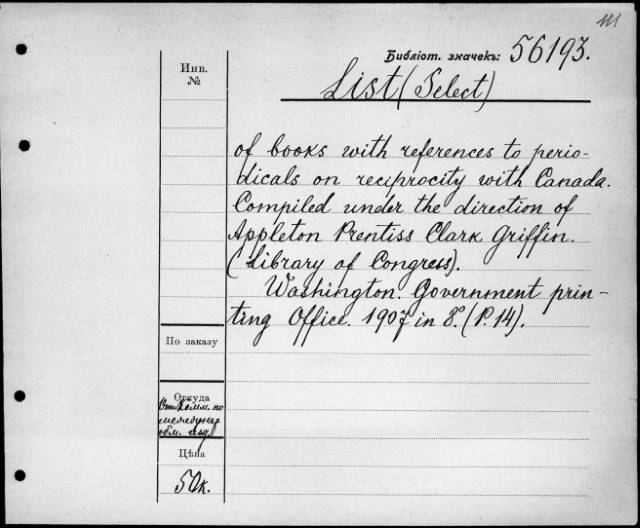 111
Библіот. значекъ: 56193.
Инв. №
List (Select)
of books with references to perio-
dicals on reciprocity with Canada.
Compiled under the direction of
Appleton Prentiss Clark Griffin.
(Library of Congress).
Washington. Government prin-
ting Office. 1907 in 8°. (P. 14).
По заказу
Откуда
От Комм. по
междунар
обм. изд.
Цѣна
50к.